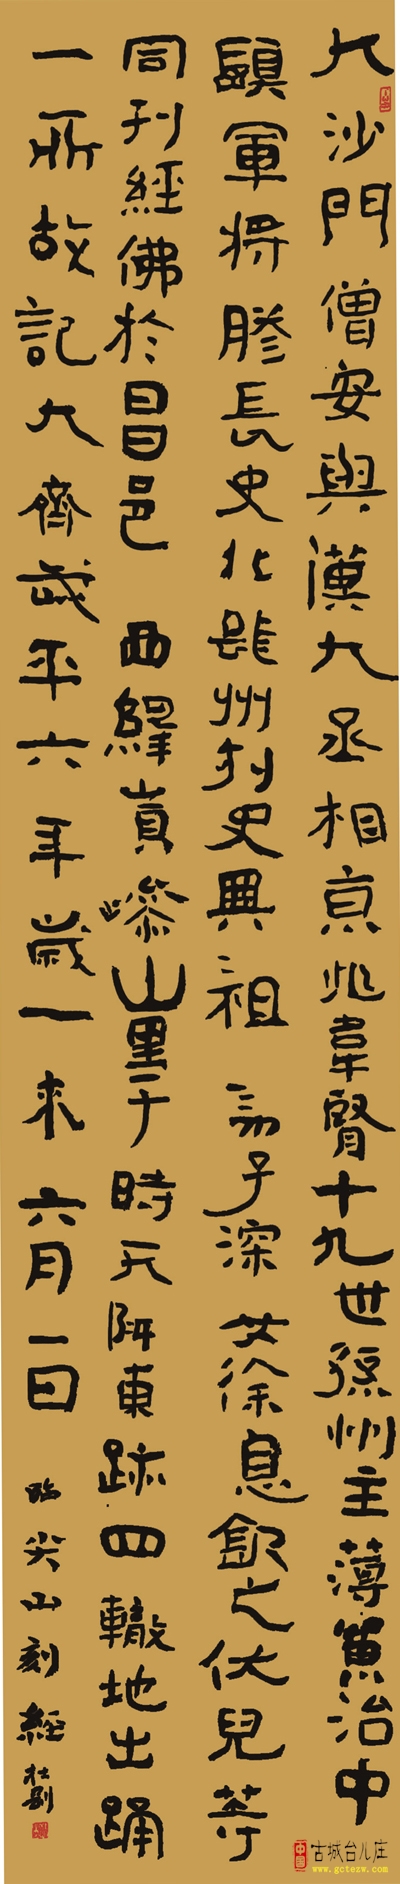 大沙門僧安與漢大丞相京兆韋賢十九世孫州主薄兼治中
鎮軍將膠長史北肆州刺史興祖 子深女徐息欽之伏兒等
同刊經佛於昌邑 西繹嵾山里于時天降東跡四轍地出踊
一所故記大齊武平六年歲一來六月一日
臨尖山刻經
中国
古城台儿庄
www.gctezw.com